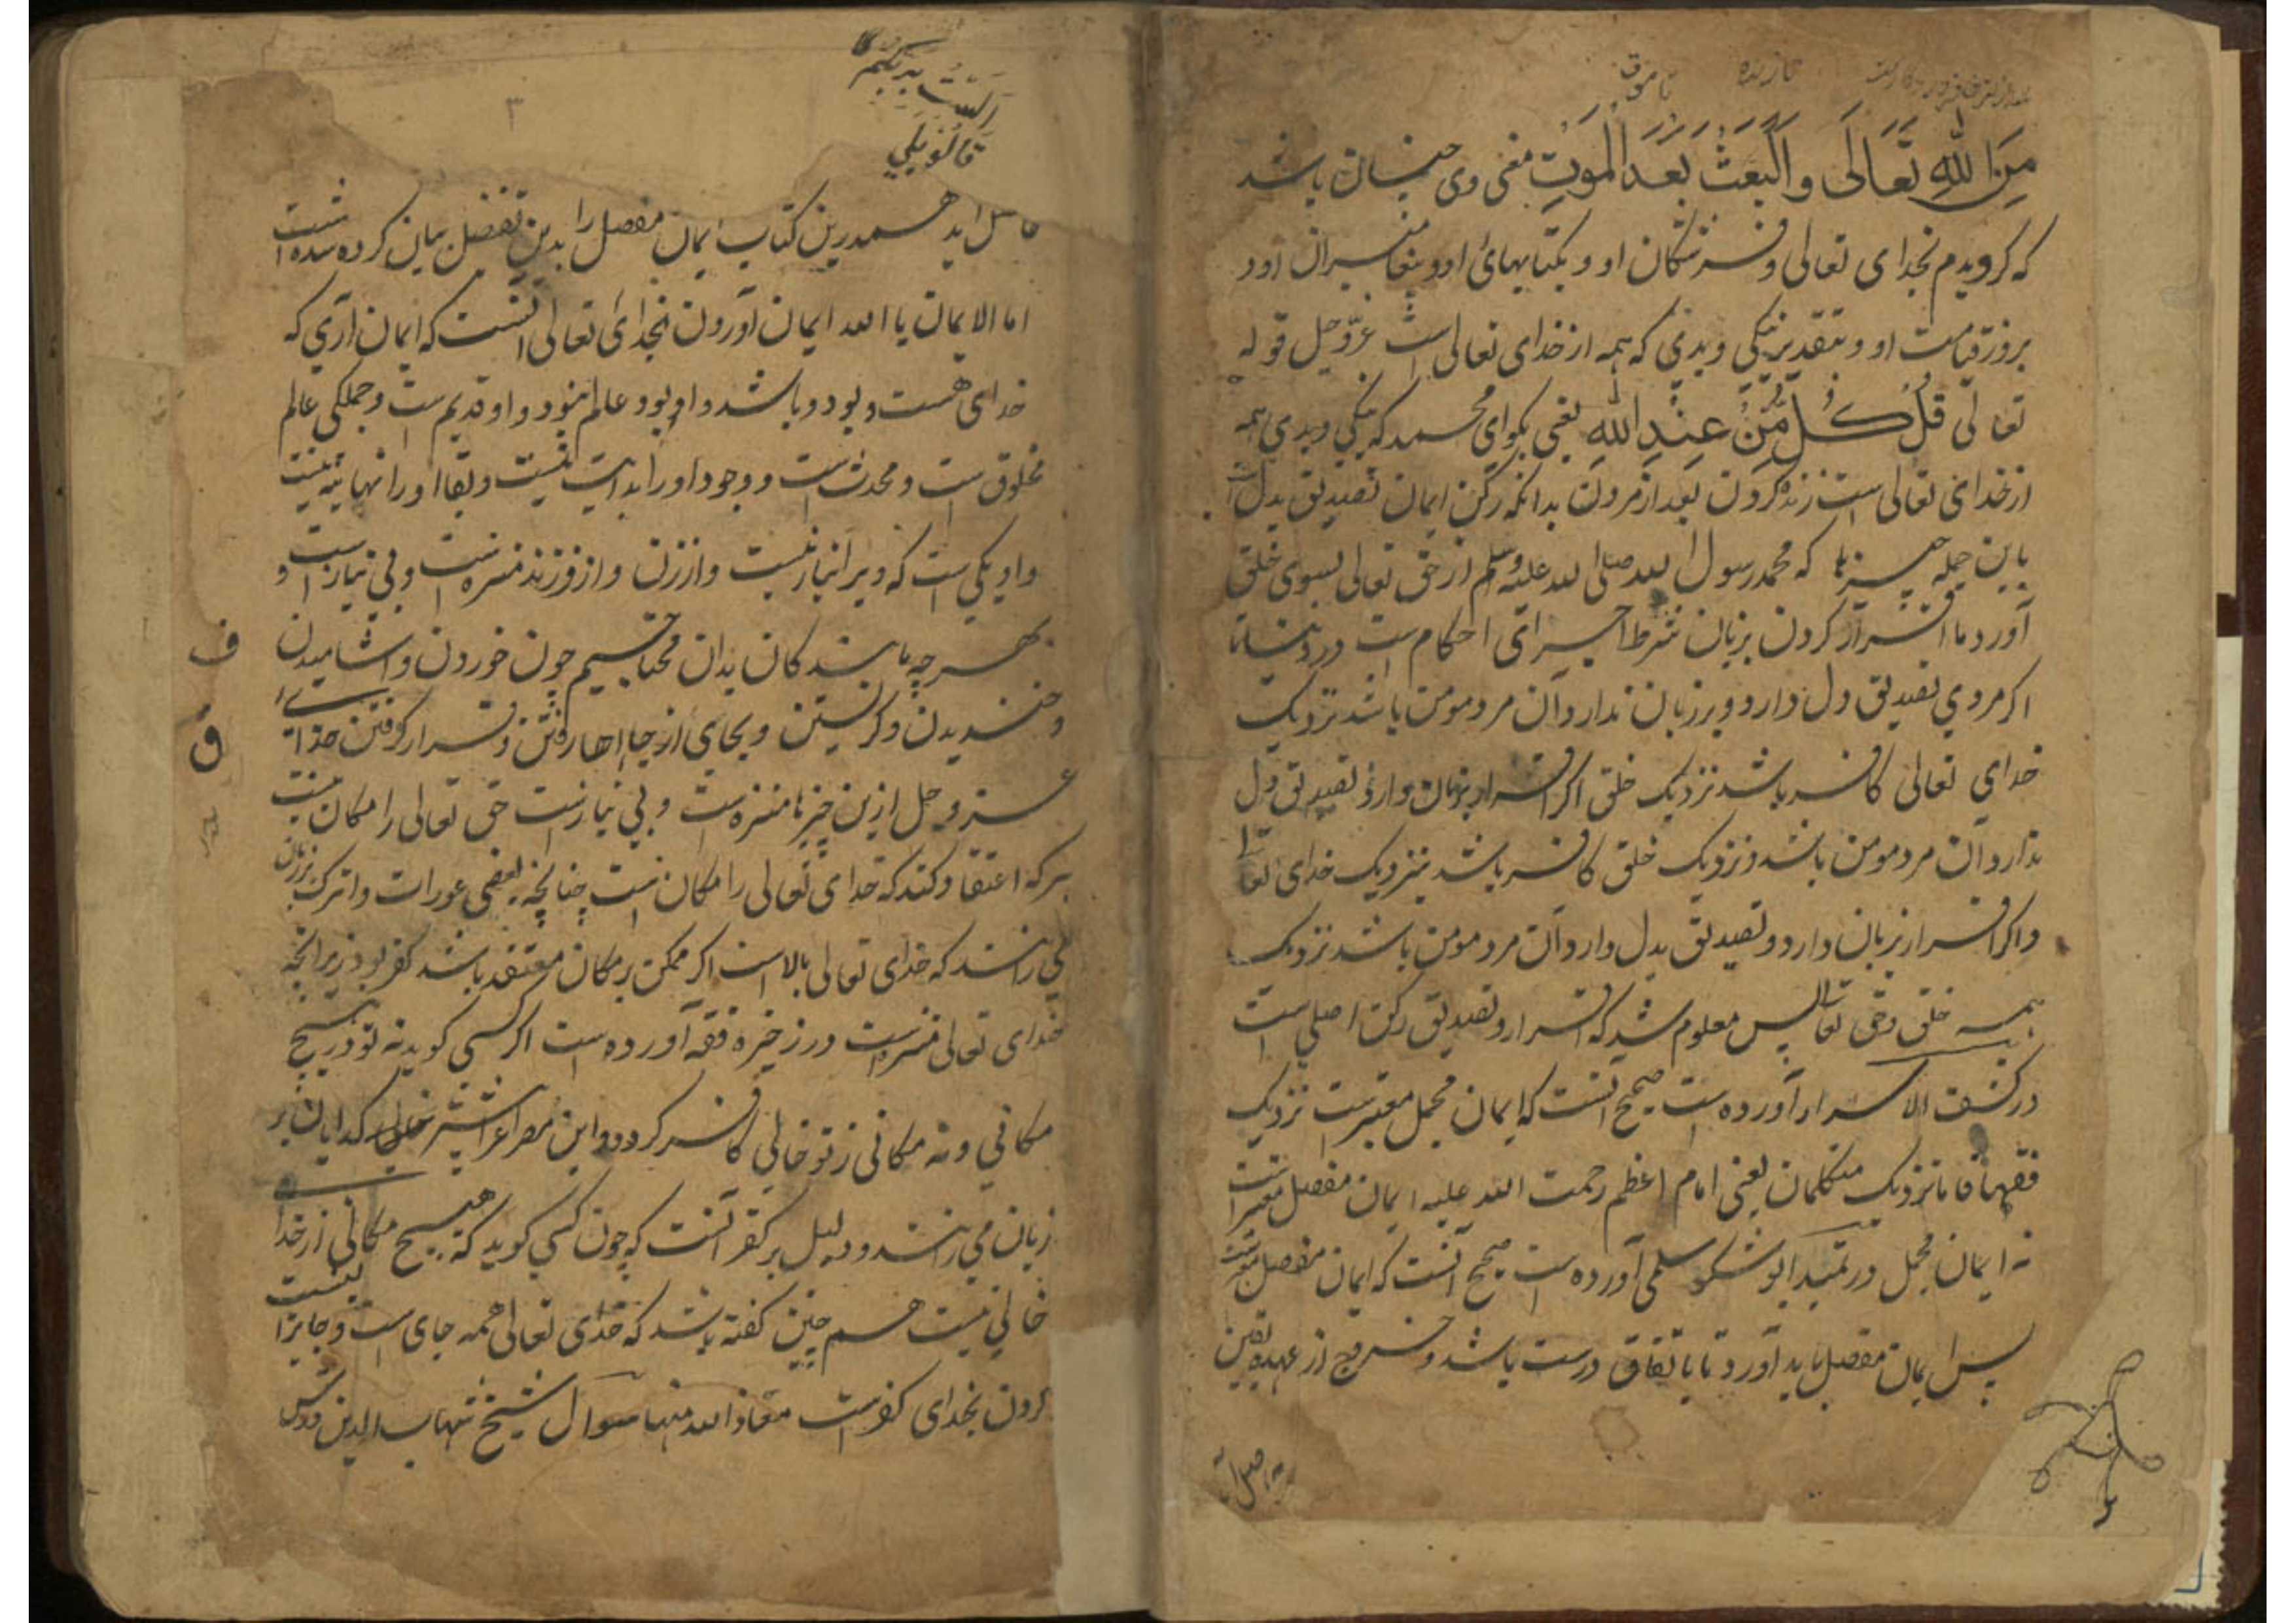 تا موت
مِنَ اللهِ تَعَالَى وَالْبَعْثُ بَعْدَ الْمَوْتِ معنی وی چنان باشد
که کرویدم بخدای تعالی و فرشتکان او و بکتابهای او و پیغامبران او و
بروز قیامت او و بتقدیر نیکی و بدی که همه از خدای تعالی است عزّوجل قوله
تعالی قُلْ كُلٌّ مِّنْ عِنْدِ اللهِ یعنی بکو ای محمد که نیکی و بدی همه
از خدای تعالی است زنده کردن بعد از مردن بدانکه رکن ایمان تصدیق بدل است
باین جمله چیزها که محمد رسول الله صلی الله علیه وسلم از حق تعالی بسوی خلق
آورد ما اقرار کردن بزبان شرط اجرای احکام است در دنیا تا
اکر مردی تصدیق دل دارد و بر زبان ندارد آن مرد مومن باشد نزدیک
خدای تعالی کافر باشد نزدیک خلق اکر اقرار بزبان دارد و تصدیق دل
ندارد آن مرد مومن باشد و نزدیک خلق کافر باشد بنزدیک خدای تعالی
و اکر اقرار بزبان دارد و تصدیق بدل دارد آن مرد مومن باشد نزدیک
همه خلق و حق تعالی پس معلوم شد که اقرار و تصدیق رکن اصلی است
در کشف الاسرار آورده است صحیح آنست که ایمان مجمل معتبر است نزدیک
فقها فاما نزدیک متکلمان یعنی امام اعظم رحمت الله علیه ایمان مفصل معتبر است
نه ایمان مجمل در تمهید ابو شکور سلمی آورده است صحیح آنست که ایمان مفصل
پس ایمان مفصل باید آورد تا باتفاق درست باشد و خروج از عهده یقین
الست بربکم
قالو بلی
۳
حاصل اید همدرین کتاب ایمان مفصل را بدین تفضل بیان کرده شده است
اما الایمان باالله ایمان آوردن بخدای تعالی آنست که ایمان آری که
خدای هست و بود و باشد و او بود و عالم نبود و او قدیم ست و جملکی عالم
مخلوق است و محدث است و وجود او را بدایت نیست و بقا او را نهایت نیست
و او یکی است که ویرا نیاز نیست و از زن و از فرزند منزه است و بی نیاز است و
بهر چه ما بندکان بدان محتاجیم چون خوردن و اشامیدن
و خندیدن و کریستن و بجای از جا اها رفتن و قرار کرفتن خدای
عزوجل ازین چیزها منزه است و بی نیاز است حق تعالی را مکان نیست
هر که اعتقاد کند که خدای تعالی را مکان است چنانچه بعضی عورات و اترک بر زبان
می رانند که خدای تعالی بالا است اکر ممکن بر مکان معتقد باشد کفر بود زیرانچه
خدای تعالی منزه است در زخیره فقه آورده است اکر کسی کوید نه تو در هیچ
مکانی و نه مکانی ز تو خالی کافر کردد و این مصراع را بیشتر کدایان بر
زبان می رانند و دلیل بر کفر آنست که چون کسی کوید که هیچ مکانی از خدا
خالی نیست هم چنین کفته باشد که خدای تعالی همه جای است و جایز نیست
کردن بخدای کفر است معاذ الله منها سوال شیخ شهاب الدین
ف
ق